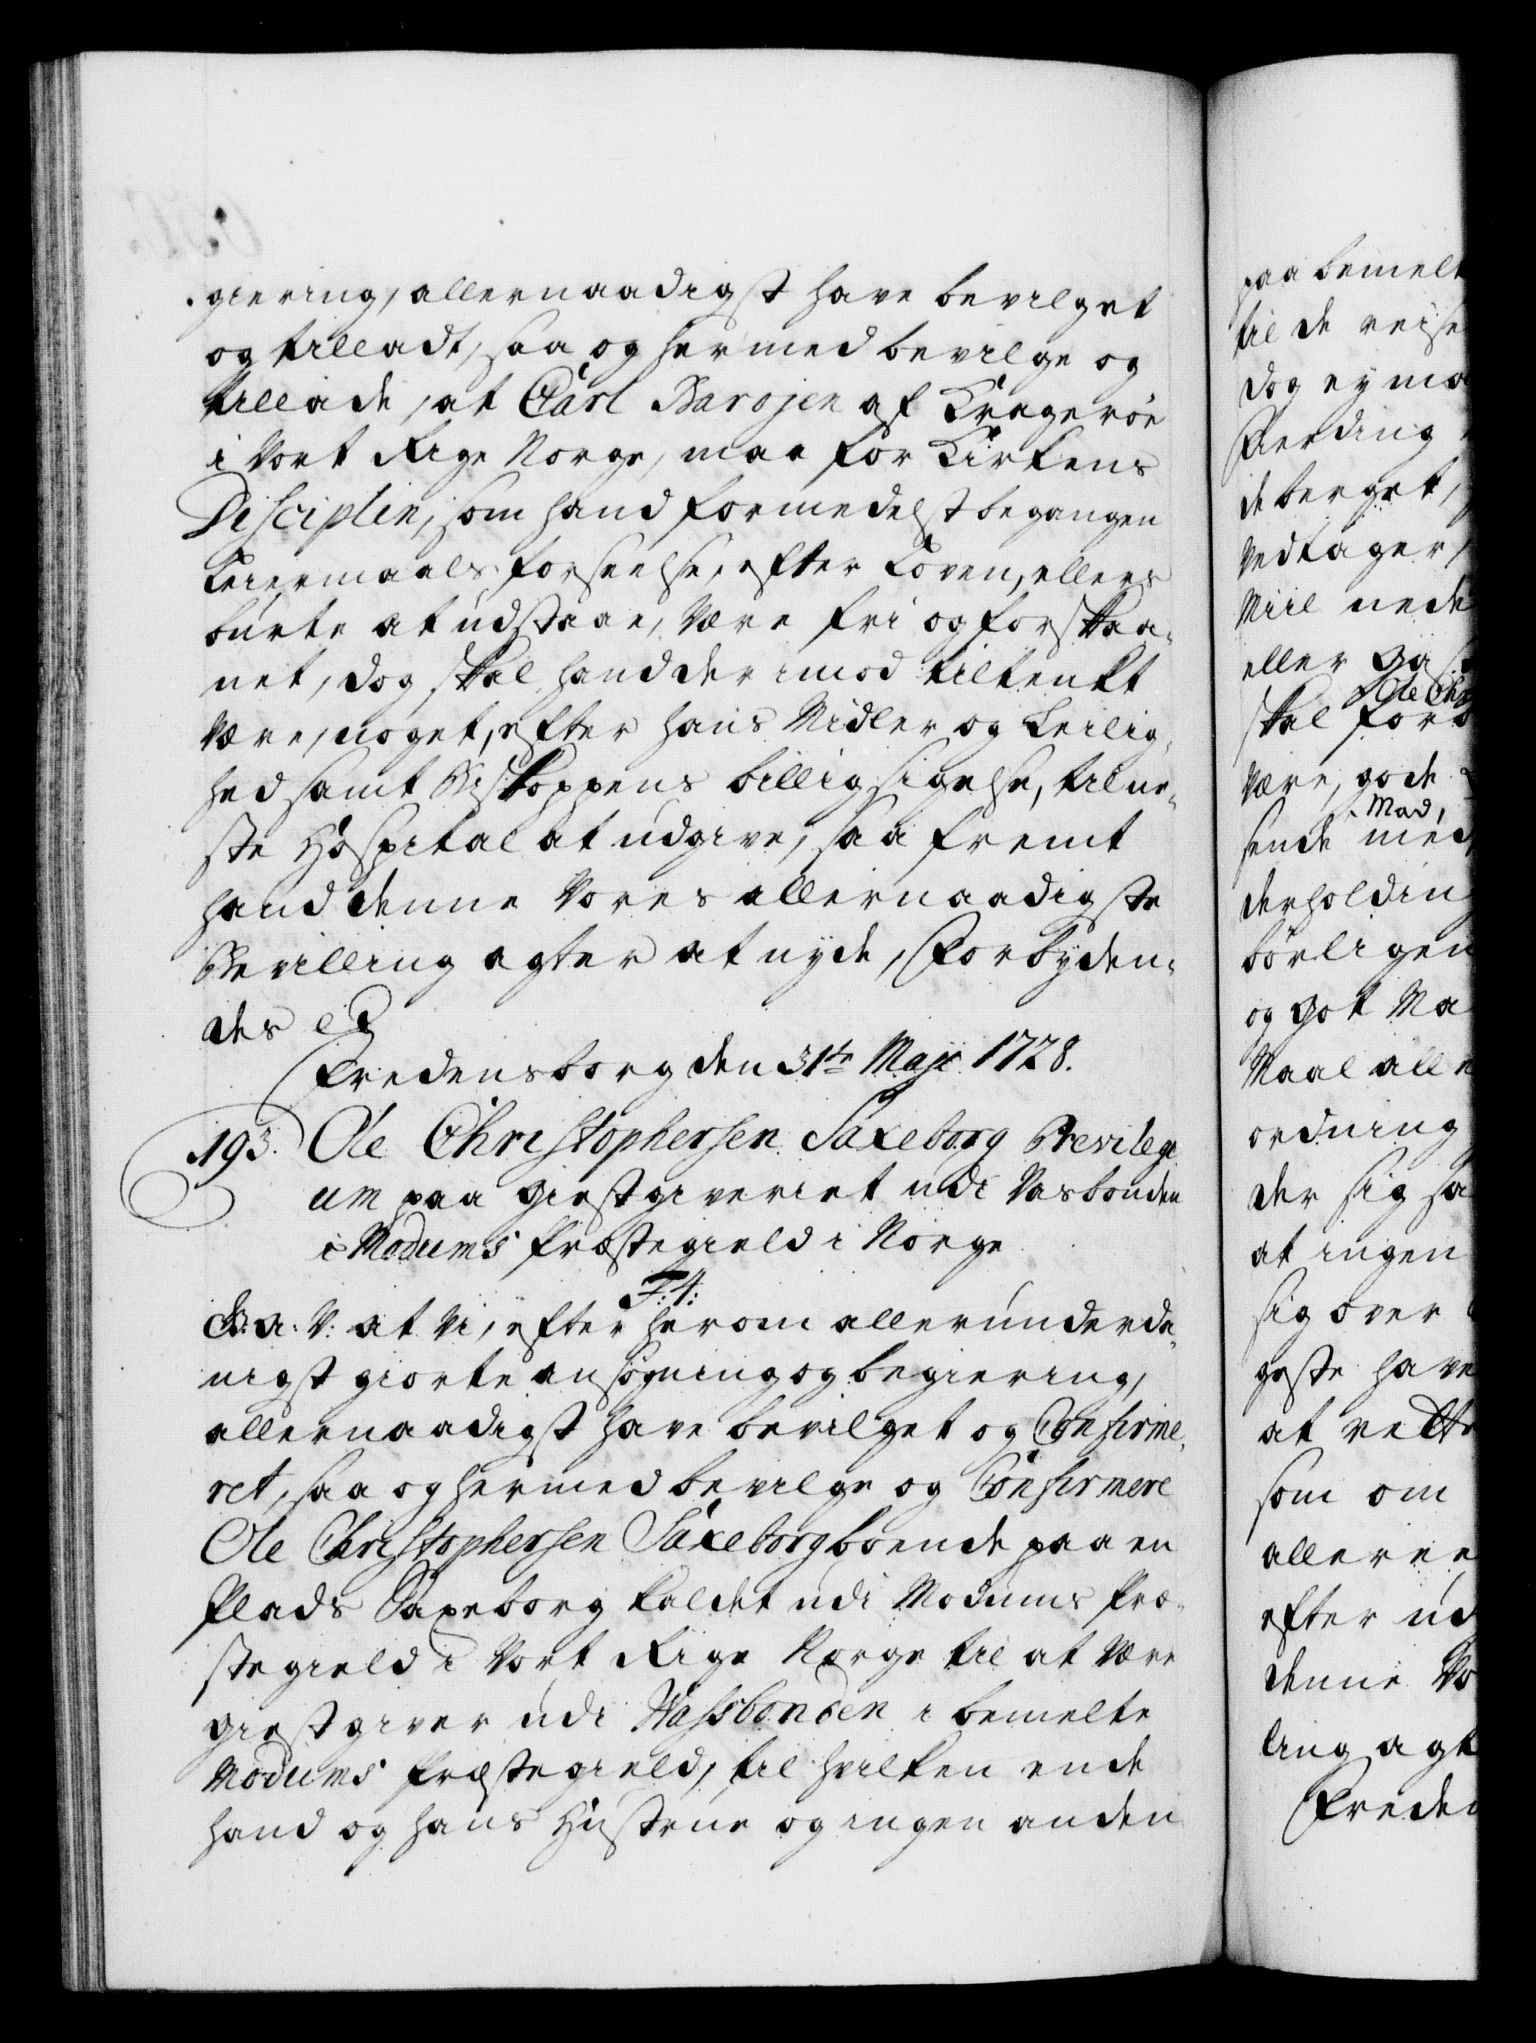 giering, allernaadigst have bevilget
og tilladt, saa og hermed bevilge og
tillade, at Carl Barojen af Kragerøe
i Vort Rige Norge, maa for Kirkens
Disciplin, som hand formedelst begangen
Leiermaals forseelse, efter Loven, ellers
burte at udstaae, være fri og forskaa-
net, dog skal hand derimod tiltenkt
være, noget, efter hans Midler og Leilig-
hed samt Biskoppens billigsigelse, til ne-
ste Hospital at udgive, saa fremt
hand denne Vores allernaadigste
Bevilling agter at nyde, Forbyden-
des &
Fredensborg den 31te Maji 1728.
193. Ole Christophersen Saxeborg Previlegi
um paa Giestgiveriet udi Vasbonden
i Modums Præstegield i Norge
F: 4:
G: a: V: at Vi, efter herom allerunderda-
nigst giorte ansøgning og begiering,
allernaadigst have bevilget og Confirme-
ret, saa og hermed bevilge og Confirmere
Ole Christophersen Saxeborg boende paa en
Plads Saxeborg kaldet udi Modums Præ-
stegield i Vort Rige Norge til at være
giestgiver udi Wassbonden i bemelte
Modums Præstegield, til hvilken ende
hand og hans Hustrue og ingen anden
paa bemelt
til de reise
dog ey ma
Fierding
de berget,
Vedtager,
Miil nede
eller
Ole Chr
skal for
være, gode
Mad,
sende med
derholdin
børligen
og got Ma
Maal alle
ordning
der sig sa
at ingen
sig over
geste have
at rette
som om
alleree
efter ud
denne Vo
ling agt
Freden